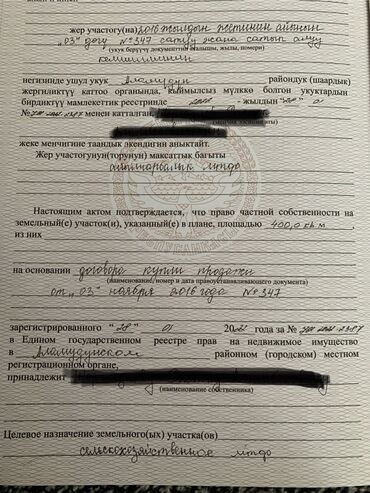 жер участогу(на) 2016 жылдын
"03" дагы №347 сатуу жана сатып алуу
(укук берүүчү документтин аталышы, жылы, номери)
келишиминин
негизинде ушул укук Аламудун райондук (шаардык)
жергиликтүү каттоо органында, кыймылсыз мүлккө болгон укуктардын
бирдиктүү мамлекеттик реестринде жылдын "28" 01
менен катталган,
жеке менчигине таандык экендигин аныктайт.
Жер участогунун(торунун) максаттык багыты
айылчарбалык мтфо
Настоящим актом подтверждается, что право частной собственности на
земельный(е) участок(и), указанный(е) в плане, площадью 400,0 кв м,
из них
на основании договора купли продажи
(наименование, номер и дата правоустанавливающего документа)
от "03" ноября 2016 года №347
зарегистрированного "28" 01 2021 года за №
в Едином государственном реестре прав на недвижимое имущество
в Аламудунском районном (городском) местном
регистрационном органе,
принадлежит
(наименование собственника)
Целевое назначение земельного(ых) участка(ов)
сельскохозяйственное мтфо